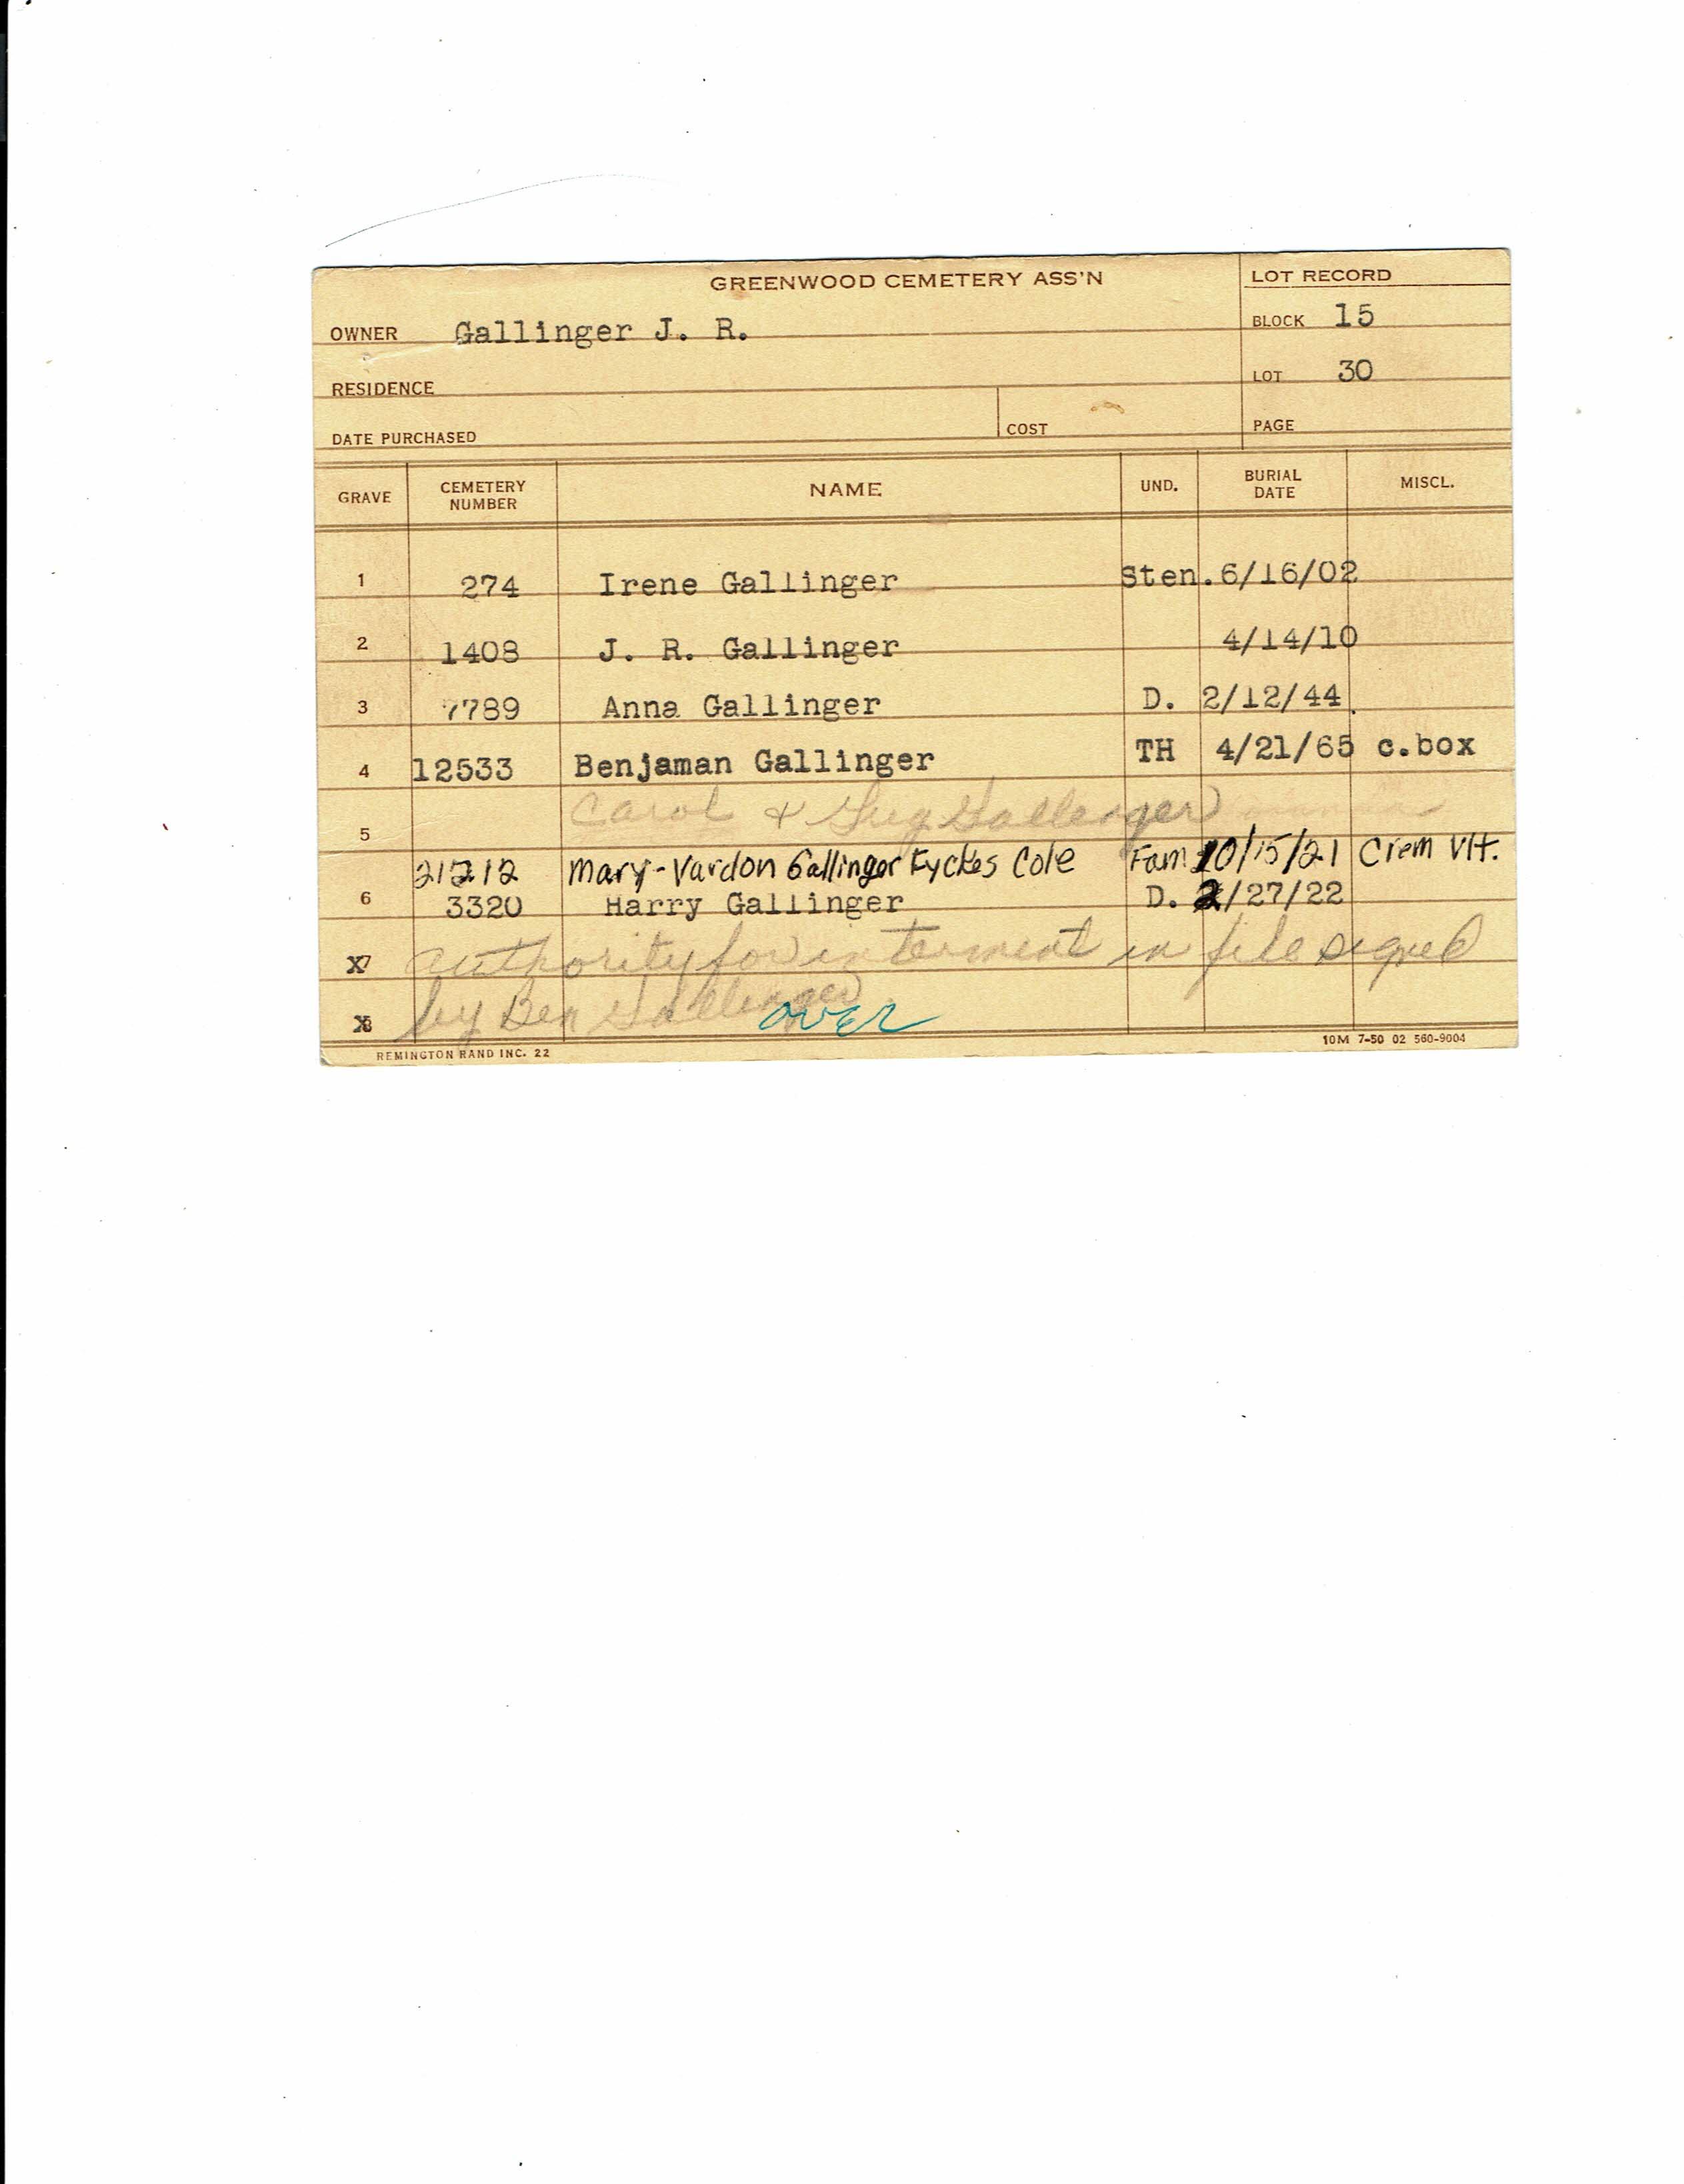 GREENWOOD CEMETERY ASS'N
LOT RECORD
OWNER Gallinger J. R.
BLOCK 15
RESIDENCE
LOT 30
DATE PURCHASED
COST
PAGE
GRAVE CEMETERY NUMBER NAME UND. BURIAL DATE MISCL.
1 274 Irene Gallinger Sten. 6/16/02
2 1408 J. R. Gallinger 4/14/10
3 7789 Anna Gallinger D. 2/12/44
4 12533 Benjaman Gallinger TH 4/21/65 c.box
5 Carol & Gallenger
21212 Mary-Vardon Gallinger Fyckes Cole Fam 10/15/21 Crem Vlt.
6 3320 Harry Gallinger D. 2/27/22
X7 authority for interment in file signed
X8 by Ben Gallinger over
REMINGTON RAND INC. 22
10M 7-50 02 560-9004